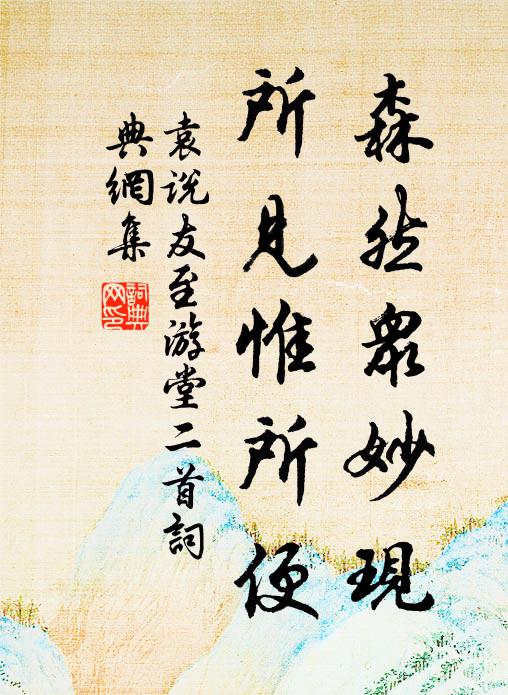 森然眾妙現
所見惟所便
袁說友至游堂二首詞
典網集
詞典網印